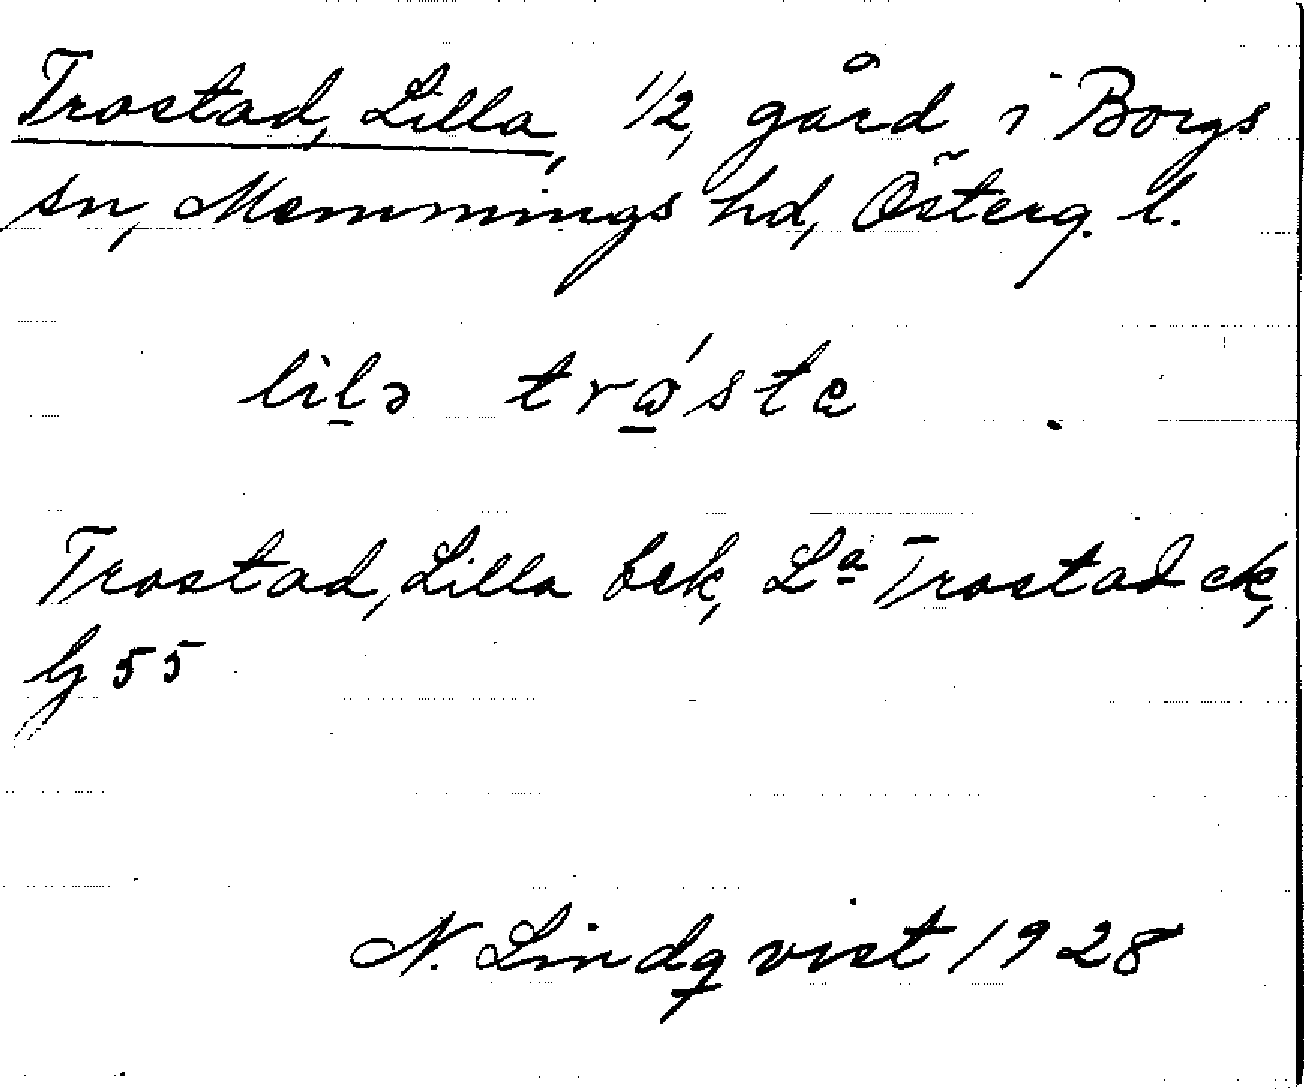 Trostad, Lilla, 1/2, gård i Borgs
sn, Memmings hd, Österg. l.
lìlə
Trostad, Lilla bek, Lª Trostad ek,
G 55
N. Lindqvist 1928